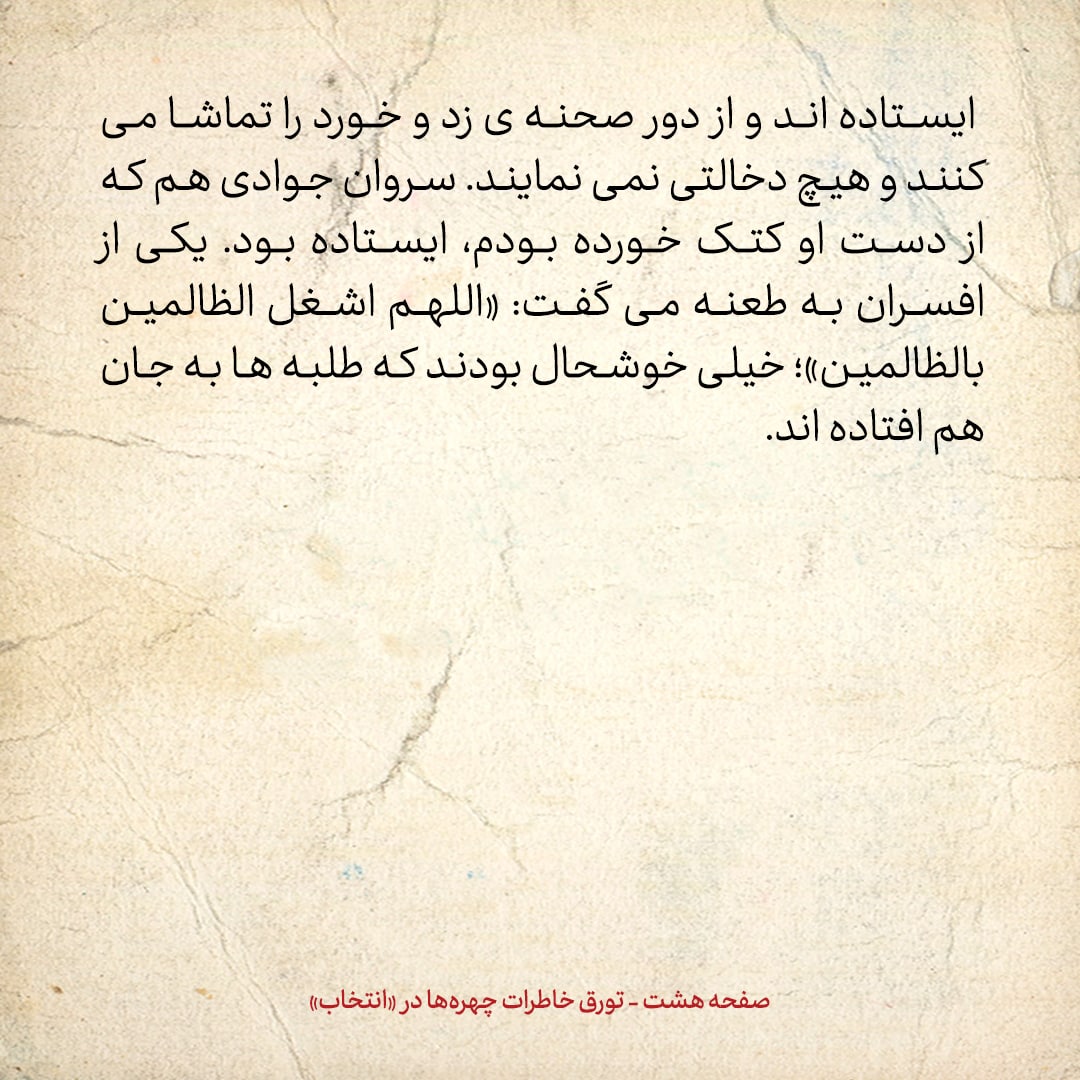 ایستاده اند و از دور صحنه ی زد و خورد را تماشا می
کنند و هیچ دخالتی نمی نمایند. سروان جوادی هم که
از دست او کتک خورده بودم، ایستاده بود. یکی از
افسران به طعنه می گفت: «اللهم اشغل الظالمین
بالظالمین»؛ خیلی خوشحال بودند که طلبه ها به جان
هم افتاده اند.
صفحه هشت - تورق خاطرات چهره‌ها در «انتخاب»